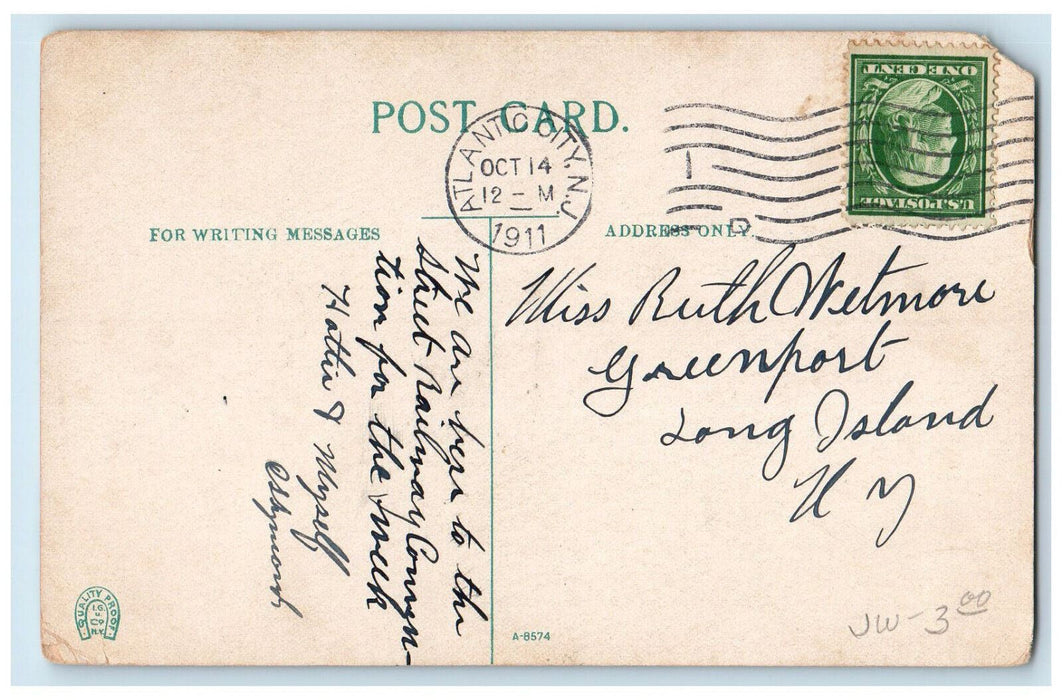 POST CARD.
ATLANTIC CITY, N.J.
OCT 14
12 — M
1911
ONE CENT
U.S. POSTAGE
FOR WRITING MESSAGES
ADDRESS ONLY.
We are here to the
Street Railway Conven-
tion for the week
Hattie & Myself
Miss Ruth Wetmore
Greenport
Long Island
N Y
QUALITY PROOF
N.Y.
A-8574
JW-3 00